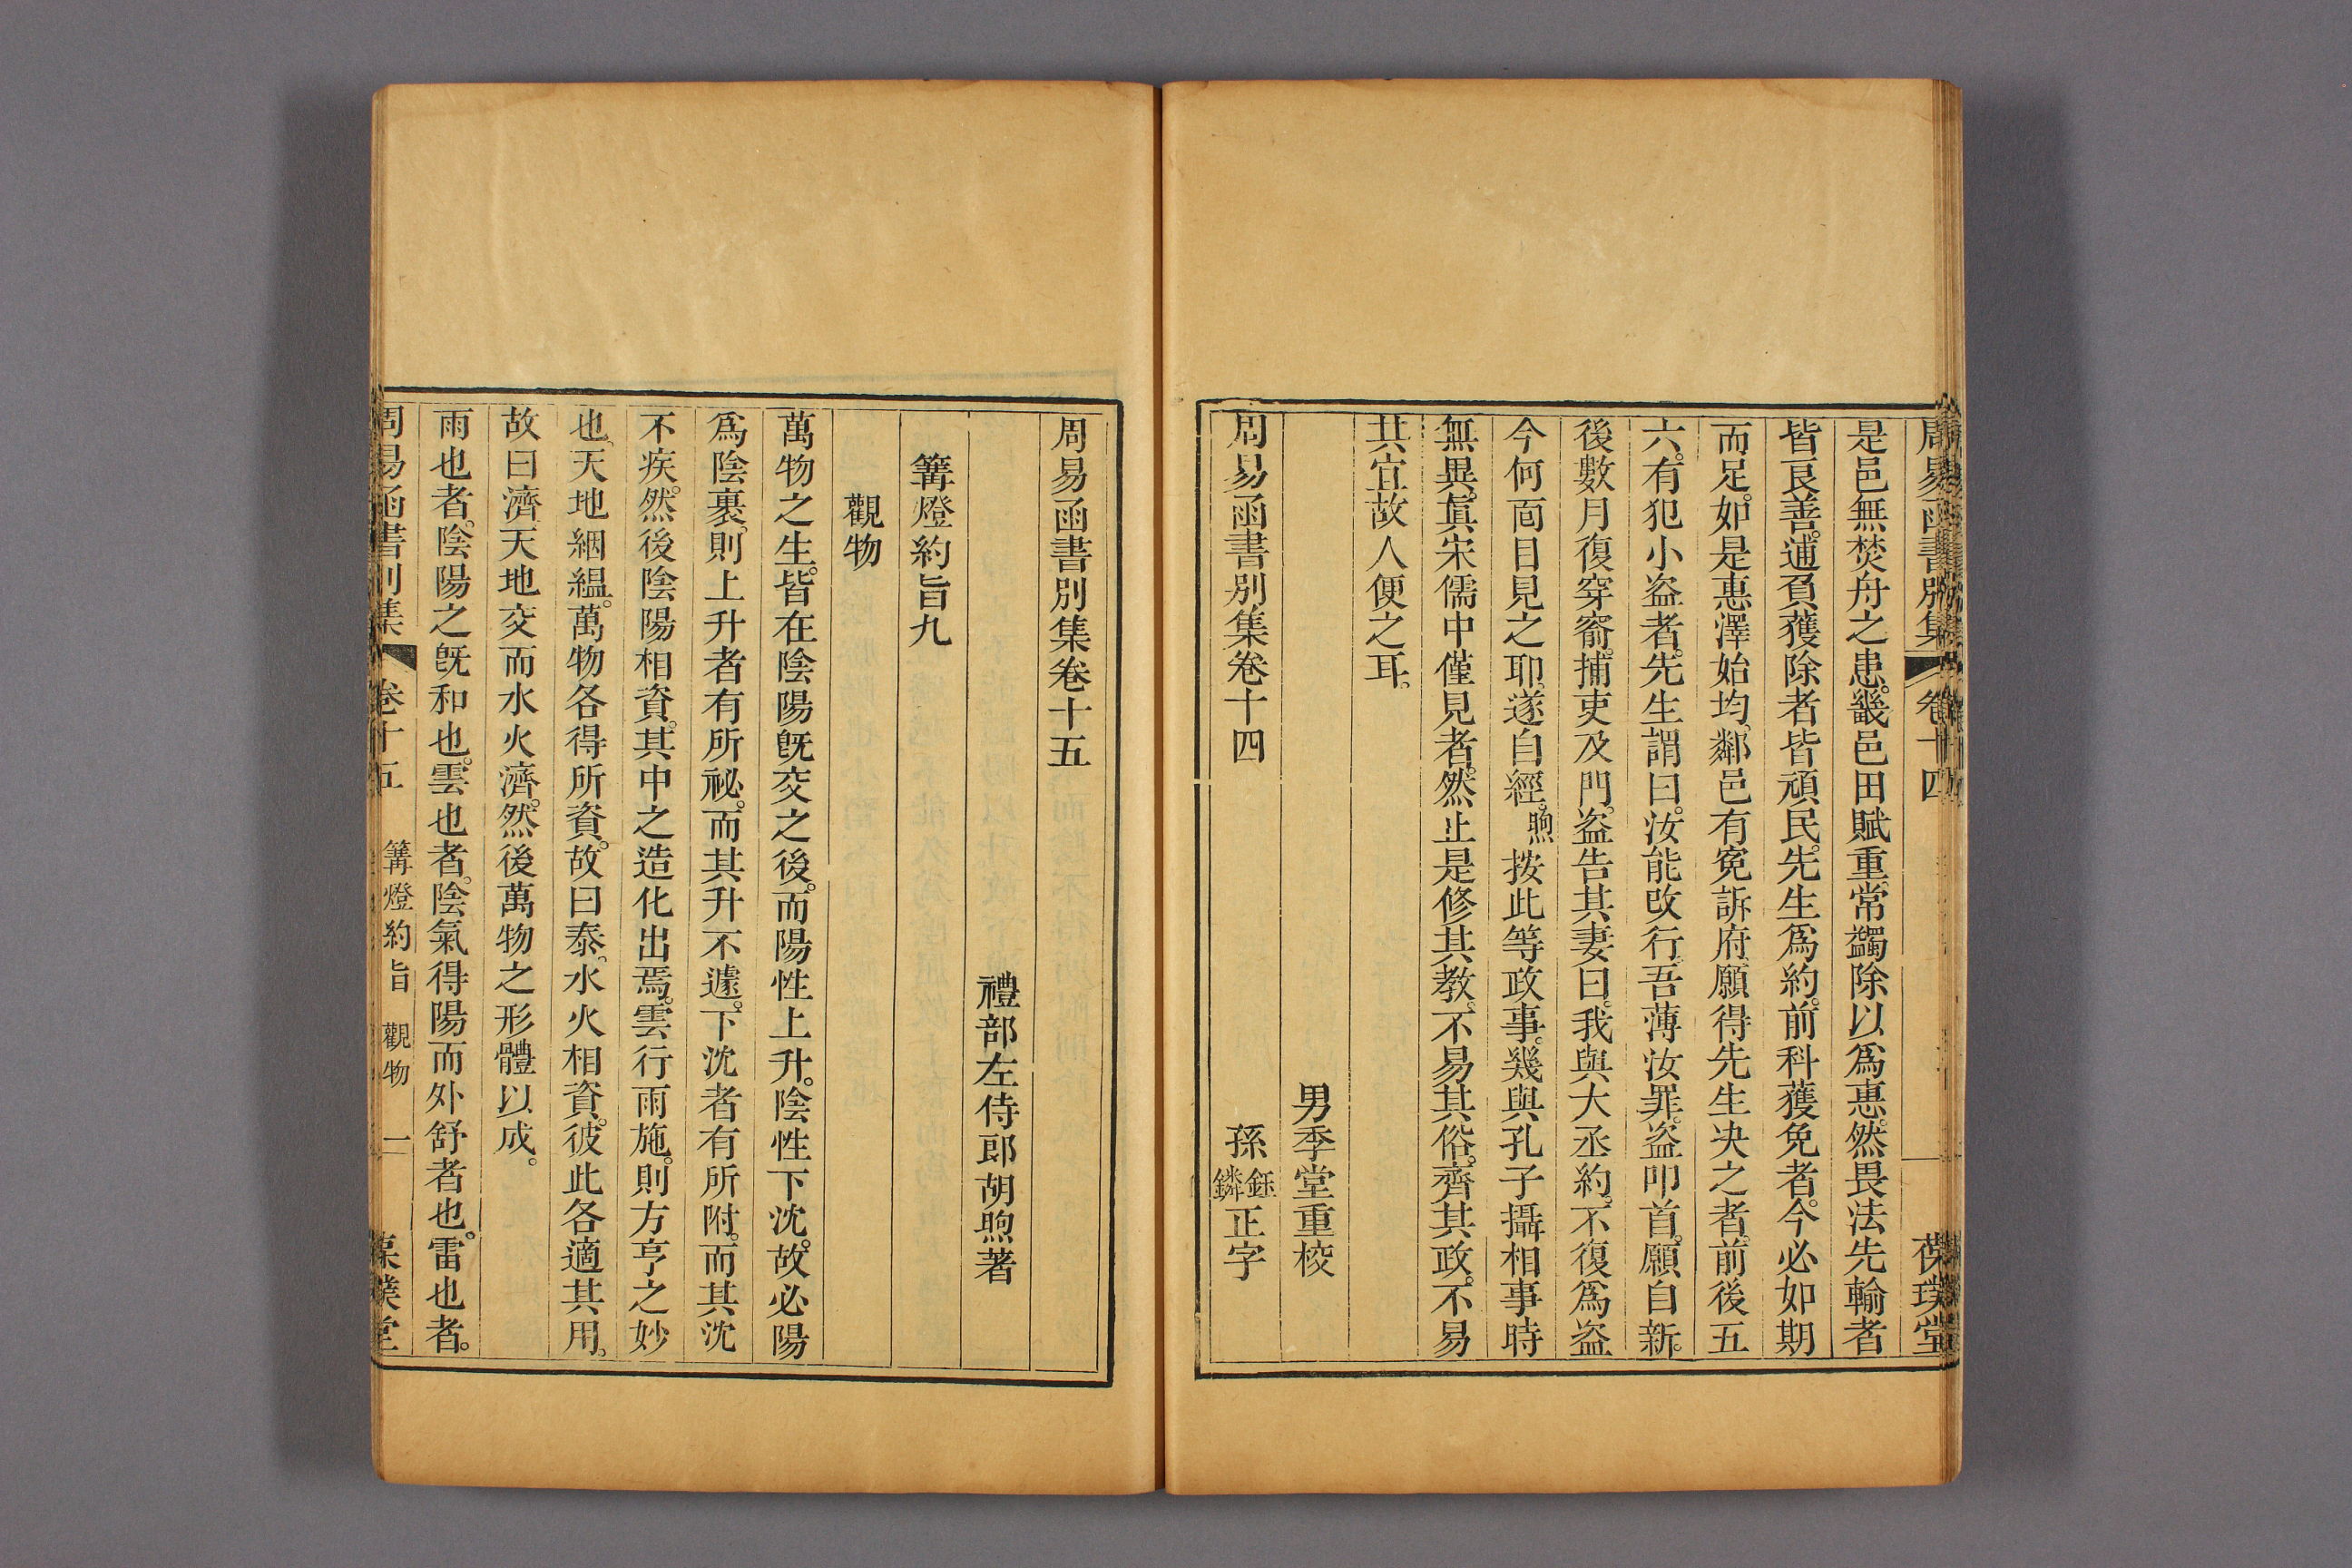 周易函書別集 卷十四 葆璞堂
是邑無焚舟之患。畿邑田賦重。常蠲除以爲惠。然畏法先輸者
皆良善。逋負獲除者皆頑民。先生爲約。前科獲免者。今必如期
而足。如是惠澤始均。鄰邑有寃訴府。願得先生决之者。前後五
六。有犯小盜者。先生謂曰。汝能改行。吾薄汝罪。盜叩首。願自新。
後數月。復穿窬。捕吏及門。盜告其妻曰。我與大丞約。不復爲盜
今何面目見之耶。遂自經。煦按此等政事。幾與孔子攝相事時
無異。眞宋儒中僅見者。然止是修其教。不易其俗。齊其政。不易
其宜。故人便之耳。
男季堂重校
周易函書別集卷十四 孫鈺鏻正字
周易函書別集卷十五
禮部左侍郎胡煦著
篝燈約旨九
觀物
萬物之生。皆在陰陽旣交之後。而陽性上升。陰性下沈。故必陽
爲陰裹。則上升者有所祕。而其升不遽。下沈者有所附。而其沈
不疾。然後陰陽相資。其中之造化出焉。雲行雨施。則方亨之妙
也。天地絪縕。萬物各得所資。故曰泰。水火相資。彼此各適其用。
故曰濟。天地交而水火濟。然後萬物之形體以成。
雨也者。陰陽之旣和也。雲也者。陰氣得陽而外舒者也。雷也者。
周易函書別集 卷十五 篝燈約旨 觀物 一 葆璞堂